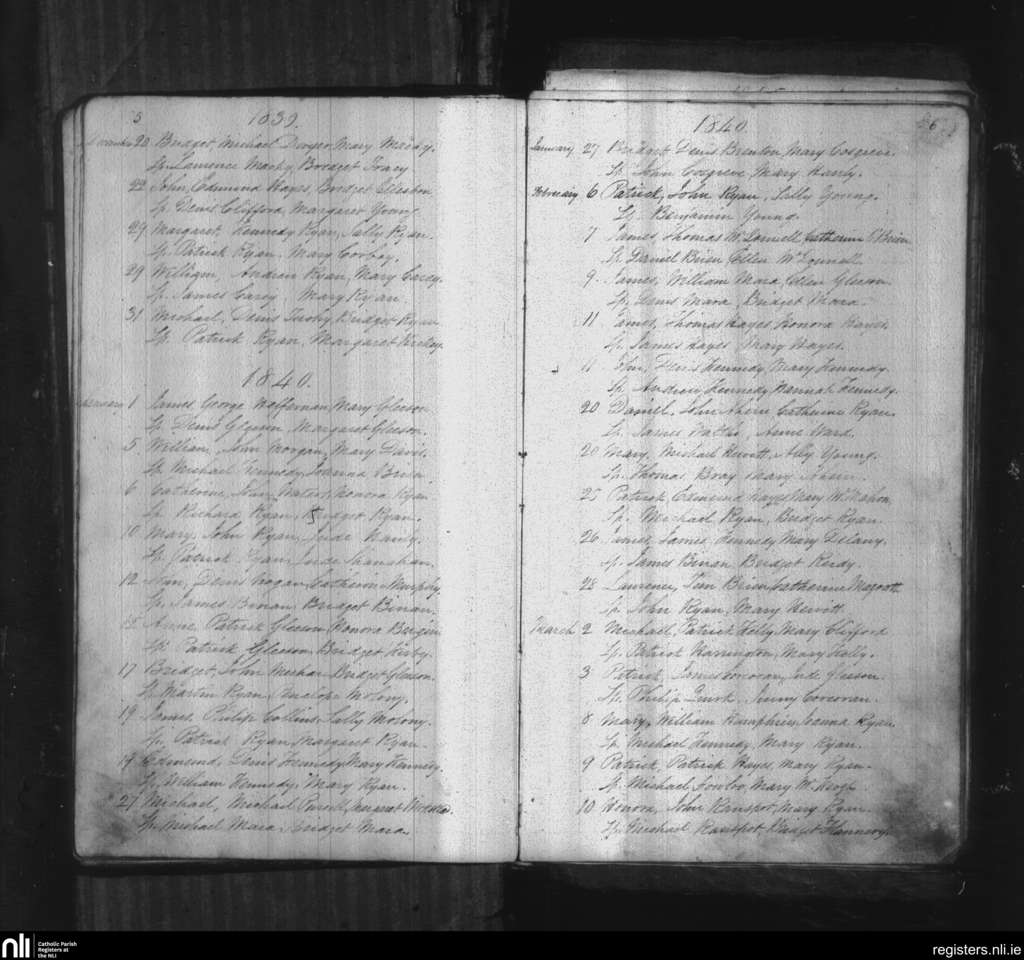 5
1839.
20 Bridget Michael Dwyer, Mary Macky.
Sp. Laurence Macky, Bridget Tracy
22 John, Edmund Hayes, Bridget Gleeson
Sp. Denis Clifford, Margaret Young.
29 Margaret, Kennedy Ryan, Sally Ryan.
Sp. Patrick Ryan, Mary Corboy.
29 William, Andrew Ryan, Mary Carey.
Sp. James Carey, Mary Ryan.
31 Michael, Denis Bridget Ryan
Sp. Patrick Ryan, Margaret
1840.
January 1 James, George Mary Gleeson.
Sp. Denis Gleeson, Margaret Gleeson.
5 William, John Morgan, Mary Davis.
Sp. Michael Kennedy, Joanna Brien.
6 Catherine, John Honora Ryan
Sp. Richard Ryan, Bridget Ryan.
10 Mary, John Ryan, Jude
Sp. Patrick Ryan, Jude Shanahan.
12 Denis Hogan, Catherine Murphy.
Sp. James Binan, Bridget Binan.
15 Anne, Patrick Gleeson, Honora Bergin
Sp. Patrick Gleeson, Bridget Kirby.
17 Bridget, John Meehan, Bridget Gleeson.
Sp. Martin Ryan, Penelope Molony.
19 James, Philip Collins, Sally Molony.
Sp. Patrick Ryan, Margaret Ryan.
19 Edmond, Denis Kennedy, Mary Kennedy.
Sp. William Kennedy, Mary Ryan.
27 Michael, Michael Purcell, Margaret
Sp. Michael Mara, Bridget Mara
1840.
6
January 27 Bridget Denis Brenton, Mary Cosgreve.
Sp. John Cosgreve, Mary
February 6 Patrick, John Ryan, Sally Young.
Sp. Benjamin Young.
7 James, Thomas McDonnell, Catherine O'Brien
Sp. Daniel Brien, Ellen McDonnell.
9 James, William Mara, Ellen Gleeson.
Sp. Denis Mara, Bridget Mara.
11 James, Thomas Hayes, Honora
Sp. James Hayes, Mary Hayes.
11 John, Kennedy, Mary Kennedy.
Sp. Andrew Kennedy, Hannah Kennedy.
20 Daniel, John Ahern, Catherine Ryan.
Sp. James Anne Ward.
20 Mary, Michael Hewitt, Ally Young.
Sp. Thomas Bray, Mary Ahern.
25 Patrick, Edmund Hayes, Mary McMahon.
Sp. Michael Ryan, Bridget Ryan.
26 James, James Kennedy, Mary Delany.
Sp. James Binan, Bridget
28 Laurence, Tim Brien, Catherine Megrath
Sp. John Ryan, Mary Hewitt.
March 2 Michael, Patrick Kelly, Mary Clifford.
Sp. Patrick Harrington, Mary Kelly.
3 Patrick, James Donovan, Jude Gleeson.
Sp. Philip Quirk, Jenny Corcoran.
8 Mary, William Humphries, Joanna Ryan.
Sp. Michael Kennedy, Mary Ryan.
9 Patrick, Patrick Hayes, Mary Ryan.
Sp. Michael Mary McKeogh.
10 Honora, John Ransport, Mary Ryan.
Sp. Michael Ransport, Bridget Flannery.
nli
Catholic Parish
Registers at
the NLI
registers.nli.ie